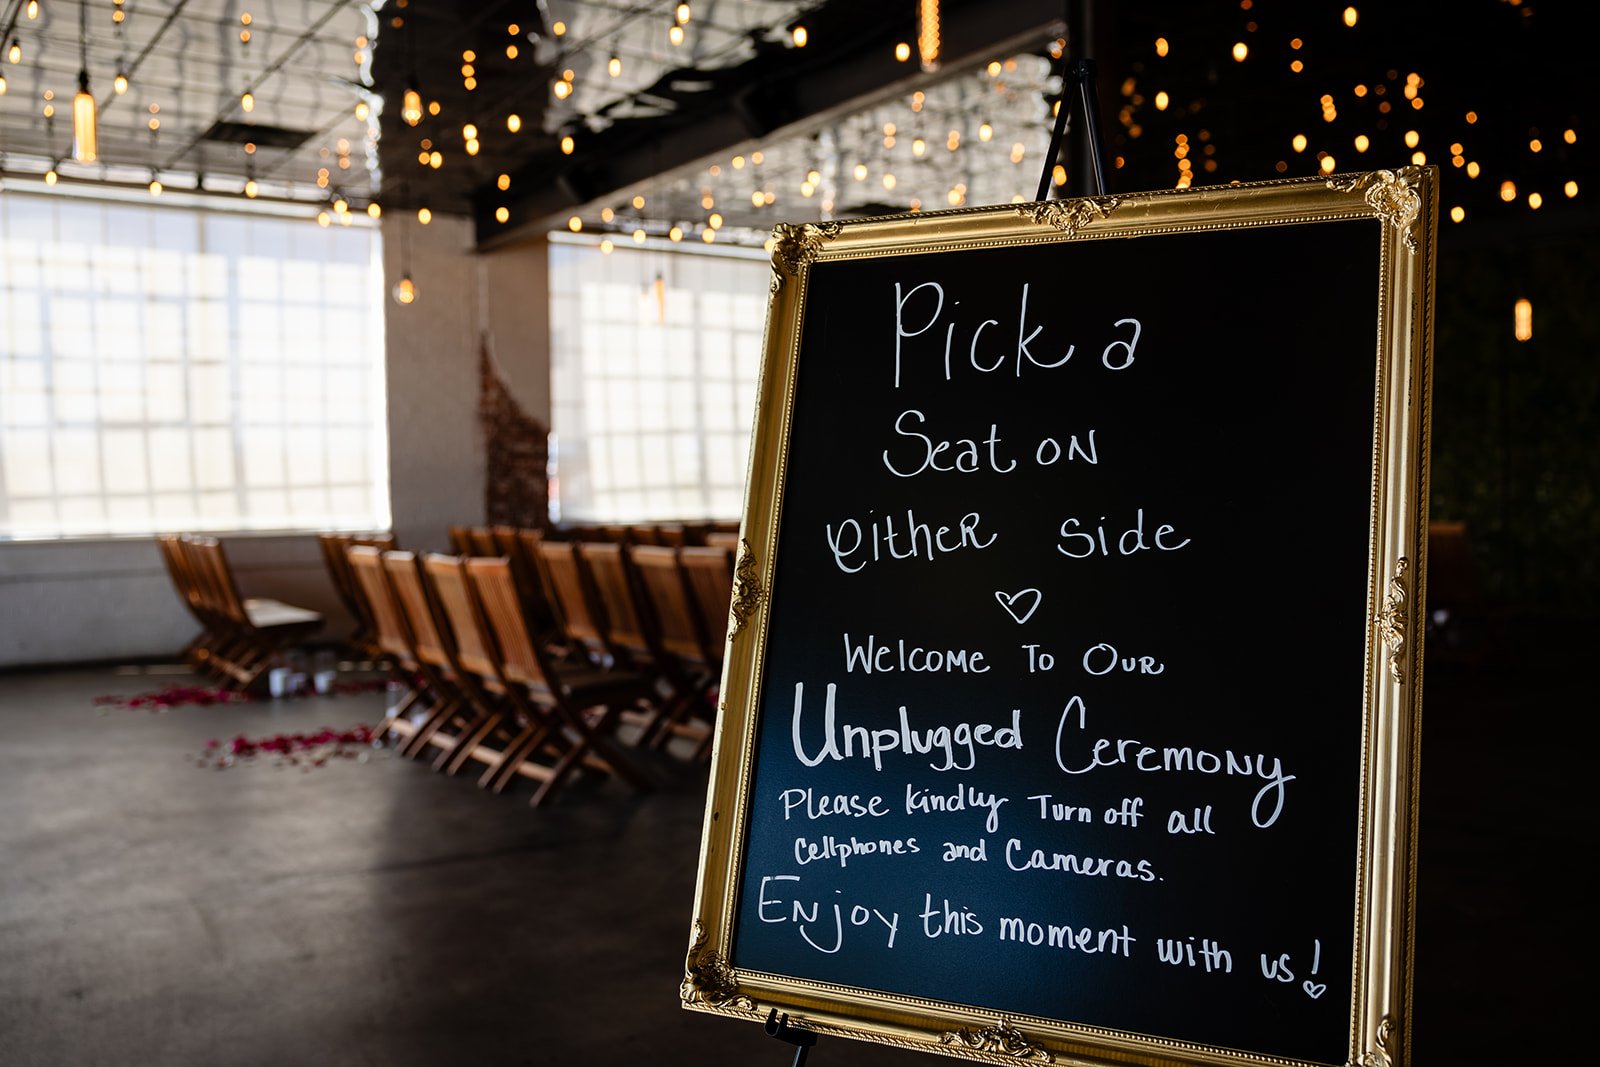 Pick a
Seat on
either side
Welcome to Our
Unplugged Ceremony
Please kindly Turn off all
Cellphones and Cameras.
Enjoy this moment with us!